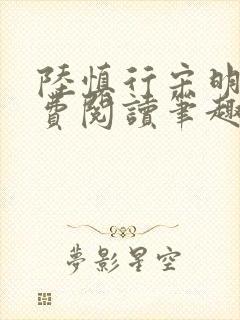 陸慎行宋明
費閱讀筆趣
夢影星空